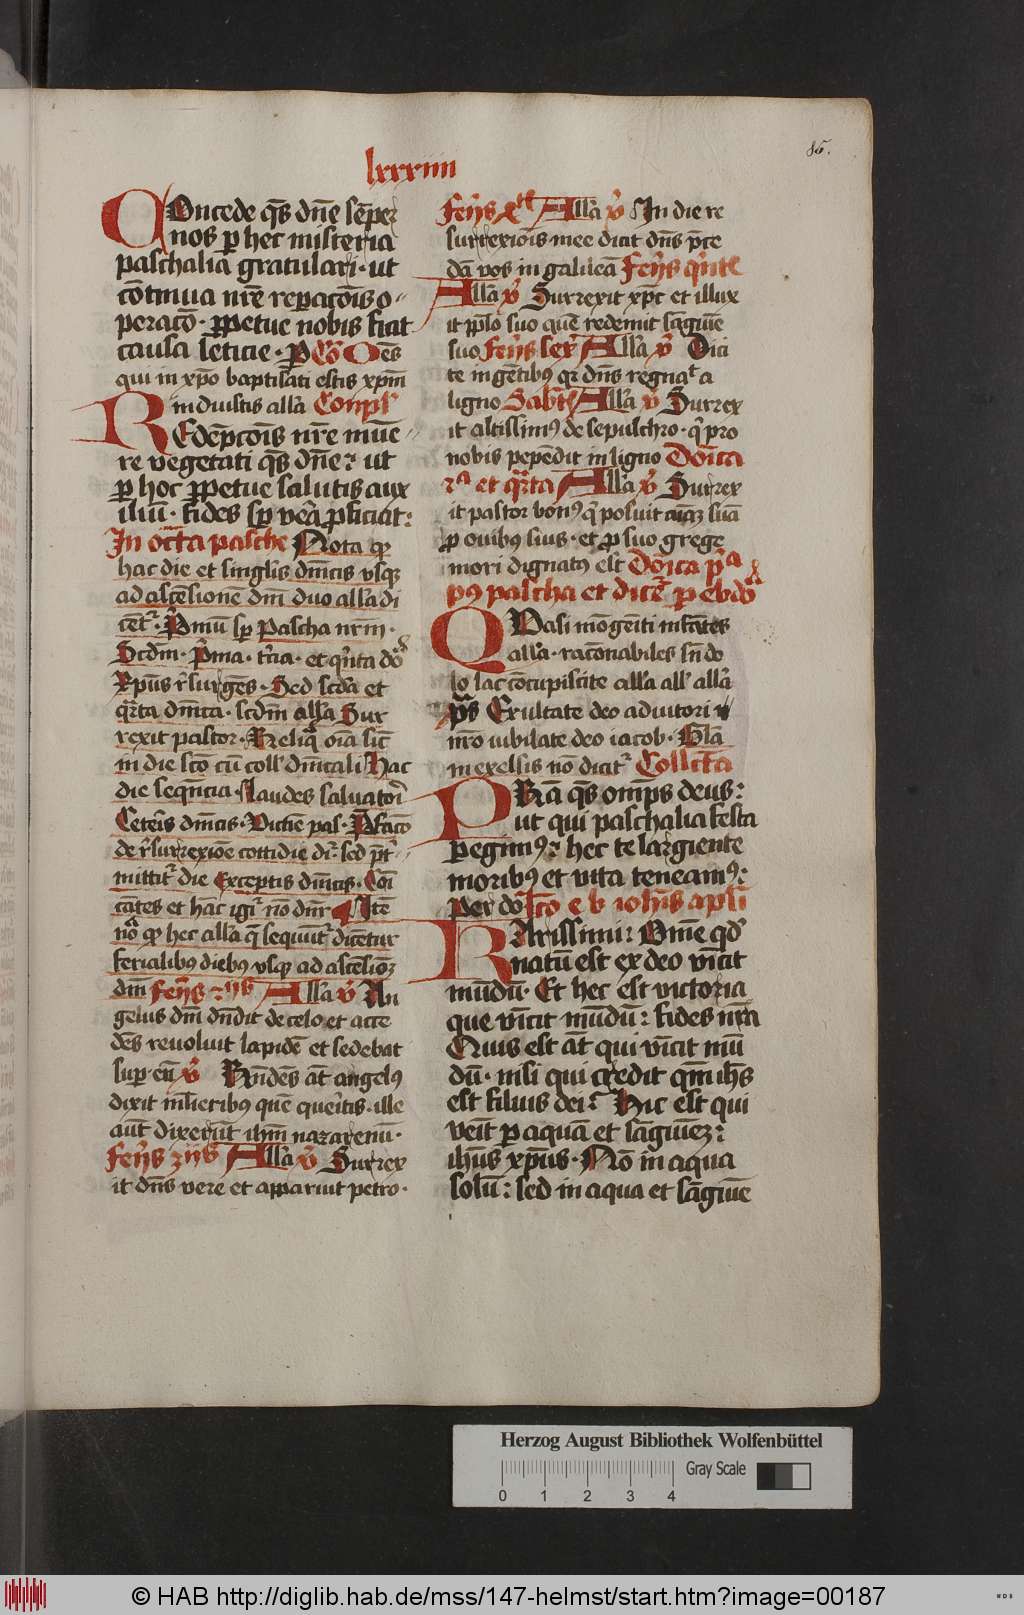 lxxxiiii
86.
Oncede qs dne semper
nos p hec misteria
paschalia gratulari · ut
cōtinua nr̄e repacōis o=
peracō · ppetue nobis fiat
causa leticie · p Cō Oēs
qui in xp̄o baptisati estis xpm̄
induistis alla Conpl
REdēpcōis nr̄e mūe=
re vegetati qs dn̄e: ut
p hoc ppetue salutis aux
iliū · fides sp vēa pficiat:
In octa pasche Nota qp
hac die et singlis dn̄icis usqꝫ
ad ascēsionē dm̄ duo alla di
cēt᷑ · Pmū sp Pascha nrm̄ ·
Scdm̄ · p̄ma · tcia · et q̄nta do
Xpūs r̄surgēs · Sed scda et
q̄rta dn̄ica · scdm̄ alla Sur
rexit pastor · Reliq̄ oīa sic̄
in die scō cū coll dn̄icali Hac
die seqn̄cia · Laudes saluatori
Ceteris dn̄icis · Victīe pas · Pfacō
de r̄surrexiōe cottidie dr̄ · sed pt=
mittit᷑ die Exceptis dn̄icis · Cōi
cātes et hāc igr̄ nō dn̄r Itē
nō qp hec alla q̄ sequūt᷑ dicētur
ferialibus diebus usqꝫ ad ascēsiōꝫ
dm̄ Feriis ijs Alla v̄ An
gelus dm̄ dn̄dit de celo et acce
dēs revoluit lapidē et sedebat
sup eū v̄ Rn̄dēs āt angelus
dixit mlieribus quē queritis · ille
aūt dixerūt ihm̄ nazarenū ·
Feriis iijs Alla v̄ Surrex
it dn̄s vere et apparuit petro ·
Feriis xte Alla v̄ In die re
surrexiōis mee dicit dn̄s p̄ce
dā vos in galileā Feriis qn̄te
Alla v̄ Surrexit xpc et illux
it pplo suo quē redemit sāguīe
suo Feriis sex Alla v̄ Dici
te in gētibus qr dn̄s regnat a
ligno Sabte Alla v̄ Surrex
it altissimus de sepulchro · q pro
nobis pepēdit in ligno Doīca
ia et q̄rta Alla v̄ Surrex
it pastor bonus q posuit aīaꝫ suā
p ovibus suis · et p suo grege
mori dignatus est Doīca pa
pus pascha et dicet᷑ p ebdo
QUasi mōgēiti infātes
alla · racōnabiles sn̄ do
lo lac cōcupiscite alla all alla
ps Exultate deo adiutori
nr̄o iubilate deo iacob · Gla
in excelsis nō dicit᷑ Collcta
PRa qs omps deus:
ut qui paschalia festa
pegimus: hec te largiente
moribus et vita teneamus:
per do lco e b iohis apli
KArissimi: Omē qd
natū est ex deo vīcit
mūdū · Et hec est victoria
que vīcit mūdū: fides nr̄a
Quis est āt qui vīcit mū
dū · nisi qui credit qm̄ ihs
est filius dei: Hic est qui
veīt p aquā et sāguīeꝫ:
ihus xpūs · Nō in aqua
solū: sed in aqua et sāguīe
Herzog August Bibliothek Wolfenbüttel
Gray Scale
0 1 2 3 4
© HAB http://diglib.hab.de/mss/147-helmst/start.htm?image=00187